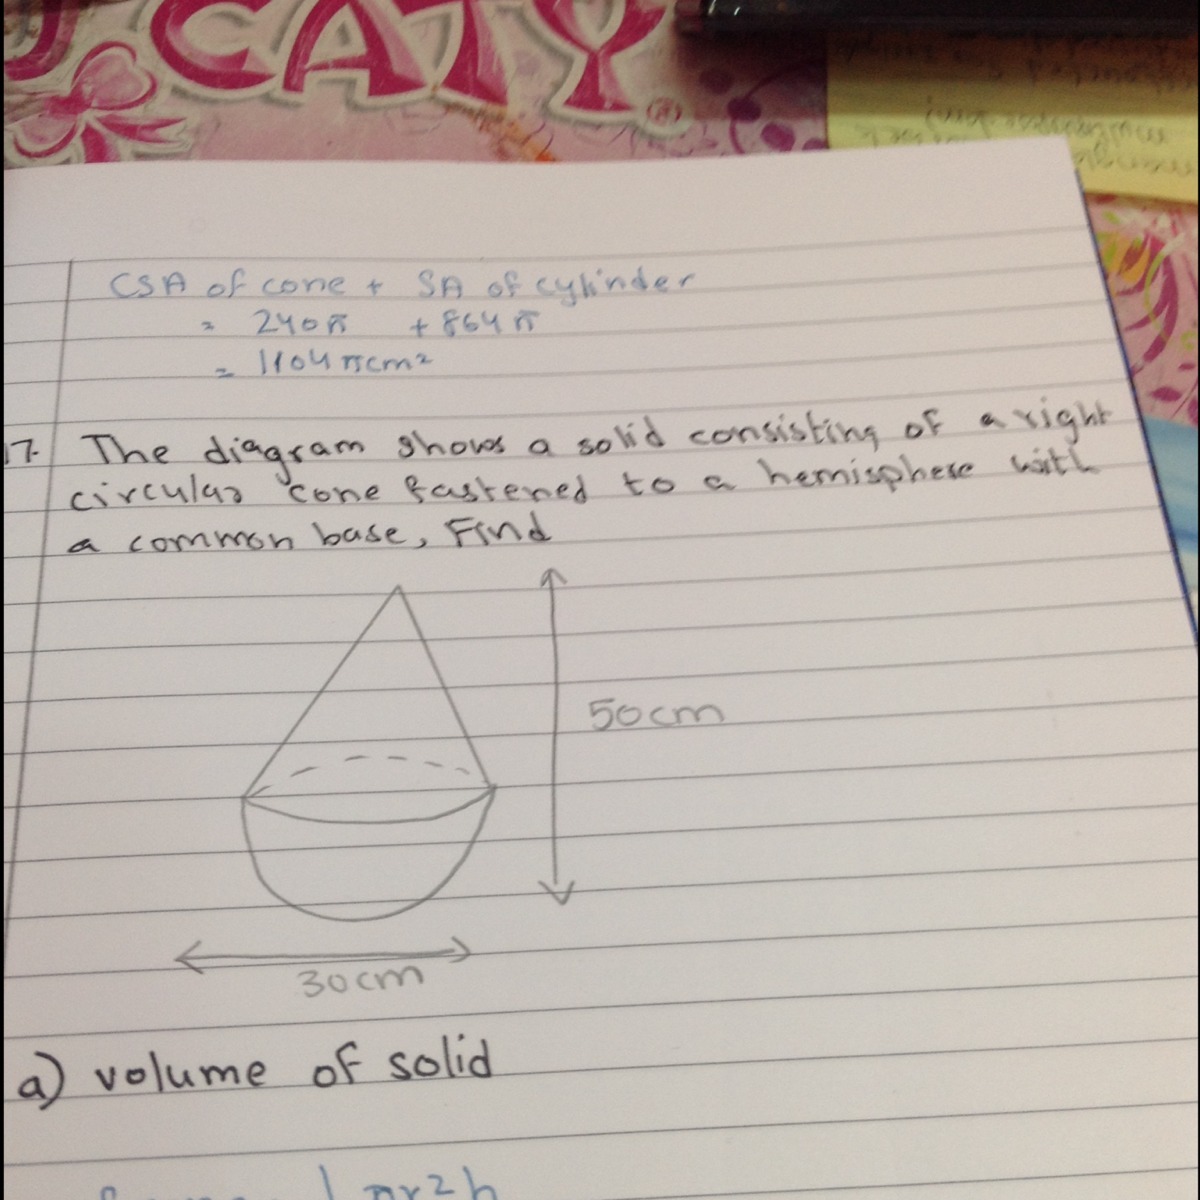 CATY®
CSA of cone + SA of cylinder
= 240π + 864π
= 1104πcm²
17. The diagram shows a solid consisting of a right
circular cone fastened to a hemisphere with
a common base, Find
50cm
30cm
a) volume of solid
πr²h